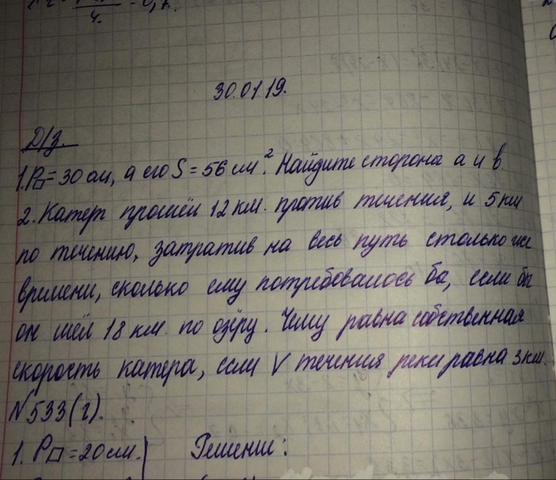 4.
30.01.19.
Д/з.
1. P▭ = 30 см, а его S = 56 см². Найдите сторона а и в
2. Катер прошёл 12 км. против течения, и 5 км
по течению, затратив на весь путь столько же
времени, сколько ему потребовалось ба, если бы
он шёл 18 км. по озёру. Чему равна собственная
скорость катера, если V течения реки равна 3 км.
N533(г).
1. P▭ = 20 см. Решение: